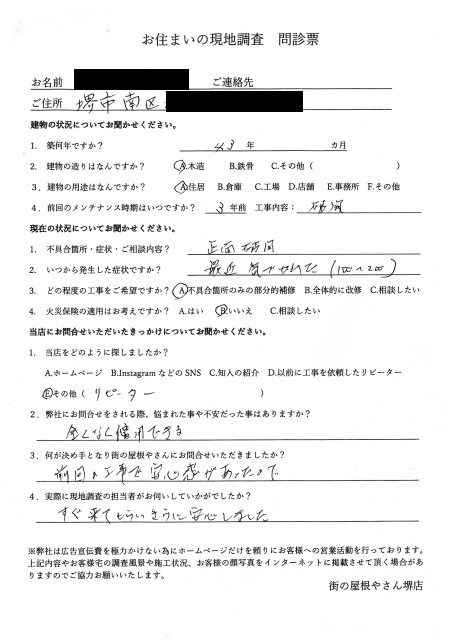 お住まいの現地調査 問診票
お名前 ご連絡先
ご住所 堺市南区
建物の状況についてお聞かせください。
1. 築何年ですか? 43 年 カ月
2. 建物の造りはなんですか? A.木造 B.鉄骨 C.その他( )
3. 建物の用途はなんですか? A.住居 B.倉庫 C.工場 D.店舗 E.事務所 F.その他
4. 前回のメンテナンス時期はいつですか? 3 年前 工事内容:
現在の状況についてお聞かせください。
1. 不具合箇所・症状・ご相談内容? 正面
2. いつから発生した症状ですか? 最近 気がついた
3. どの程度の工事をご希望ですか? A.不具合箇所のみの部分的補修 B.全体的に改修 C.相談したい
4. 火災保険の適用はお考えですか? A.はい B.いいえ C.相談したい
当店にお問合せいただいたきっかけについてお聞かせください。
1. 当店をどのように探しましたか?
A.ホームページ B.InstagramなどのSNS C.知人の紹介 D.以前に工事を依頼したリピーター
E.その他( リピーター )
2. 弊社にお問合せをされる際、悩まれた事や不安だった事はありますか?
全くなく信用できる
3. 何が決め手となり街の屋根やさんにお問合せいただきましたか?
前回の工事で安心感があったので
4. 実際に現地調査の担当者がお伺いしていかがでしたか?
すぐ来てもらい さらに安心しました
※弊社は広告宣伝費を極力かけない為にホームページだけを頼りにお客様への営業活動を行っております。
上記内容やお客様宅の調査風景や施工状況、お客様の顔写真をインターネットに掲載させて頂く場合があ
りますのでご協力お願いいたします。
街の屋根やさん堺店